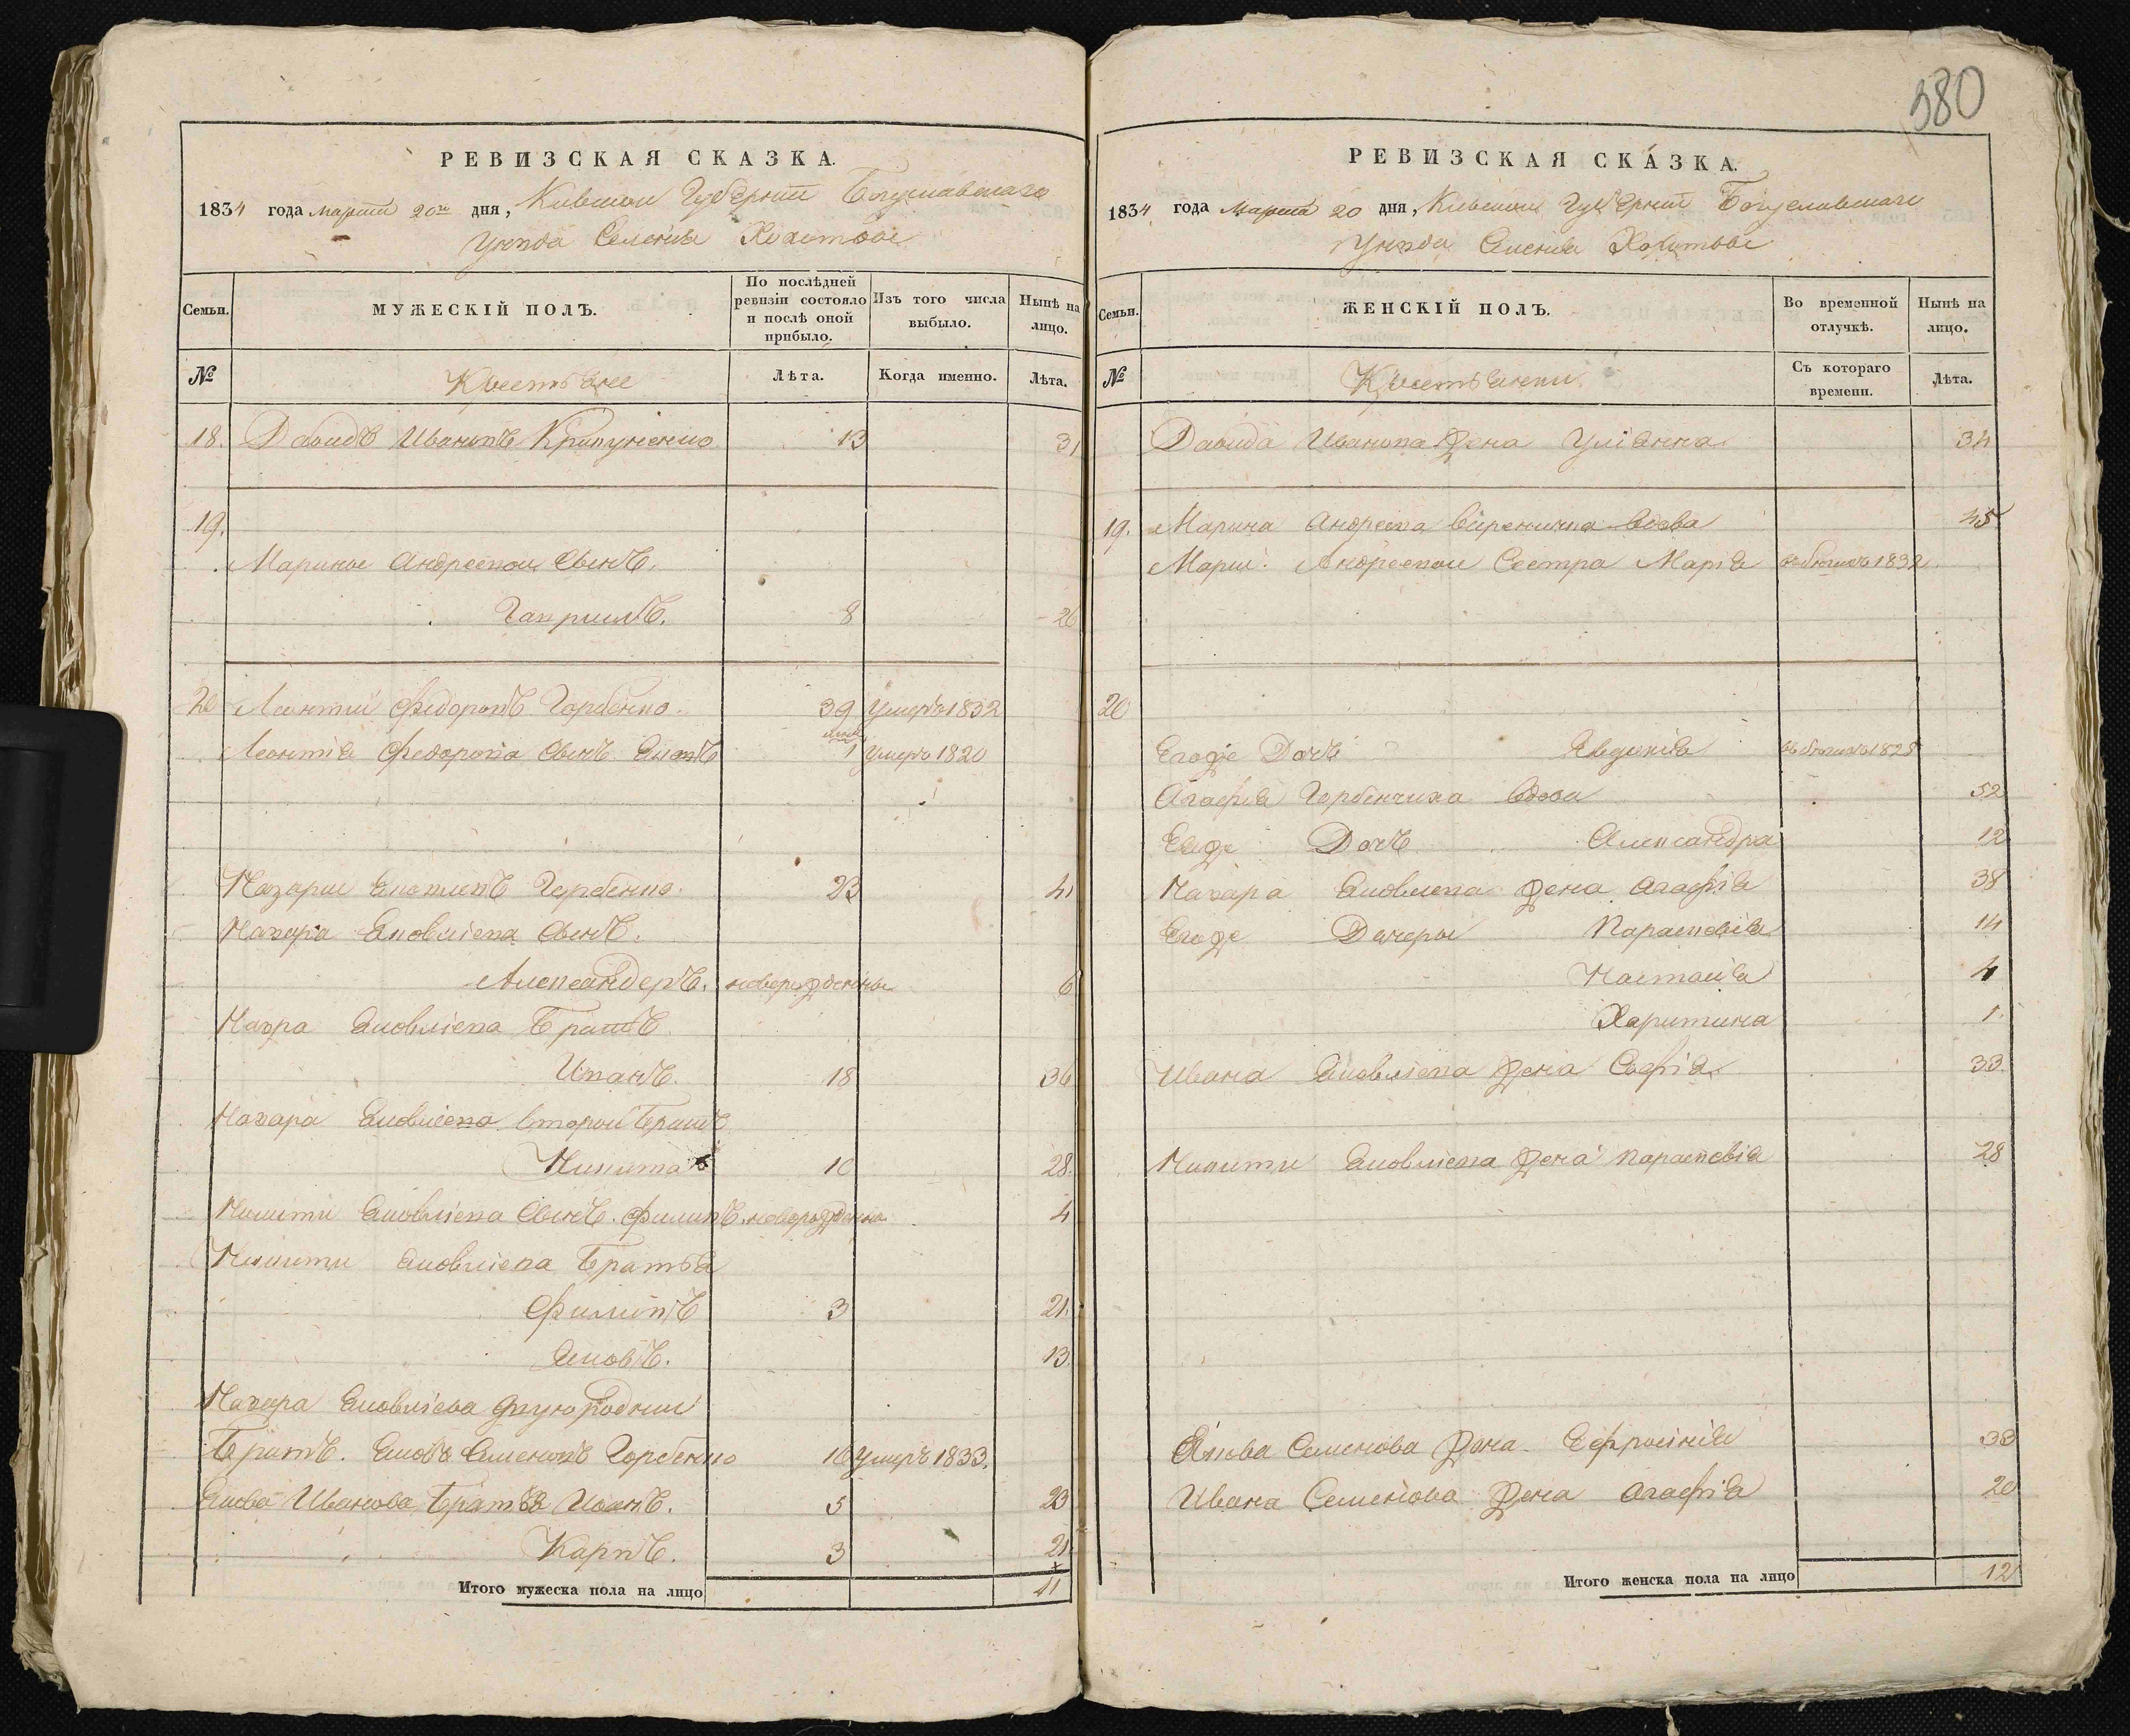 РЕВИЗСКАЯ СКАЗКА.
1834 года марта 20го дня, Киевской Губернии Богуславскаго
Уезда Селения Хохитвы
Семьи.
МУЖЕСКІЙ ПОЛЪ.
По послѣдней ревизіи состояло и послѣ оной прибыло.
Изъ того числа выбыло.
Нынѣ на лицо.
№
Крестьяне
Лѣта.
Когда именно.
Лѣта.
18. Давидъ Ивановъ Крипуненко 13 31
19.
Марины Андреевой Сынъ.
Гавриилъ. 8 26
20 Леонтий Федоровъ Горбенко. 39 умеръ 1832
Леонтия Федорова Сынъ 1 умеръ 1820
Назарий Яковлевъ Горбенко. 23 41
Назара Яковлієва Сынъ.
Александеръ. новорожденный 6
Назра Яковлієва Братъ
Иванъ. 18 36
Назара Яковлієва второй Братъ
Никита 10 28.
Никити Яковлієва Сынъ. Филипъ. новорожденно 4
Никити Яковлієва Братья
Филипъ 3 21.
Яковъ. 13.
Назара Яковлієва двуюродний
Братъ. Яковъ Семеновъ Горбенко 16 умеръ 1833.
Якова Иванова Братья Иванъ. 5 23
Карпъ. 3 21.
Итого мужеска пола на лицо 11
380
РЕВИЗСКАЯ СКАЗКА.
1834 года Марта 20 дня, Киевской Губернии Богуславскаго
Уезда Селения Хохитвы
Семьи.
ЖЕНСКІЙ ПОЛЪ.
Во временной отлучкѣ.
Нынѣ на лицо.
№
Крестьянки
Съ котораго времени.
Лѣта.
Давида Иванова жена Уліянна 34
19. Марина Андреева вдова 45
Марии Андреевой Сестра Марія въ бегахъ 1832
20
Егоже Дочь Явдокія въ бегахъ 1825
Агафія Горбенчиха вдова 52
Еяже Дочь Александра 12
Назара Яковлева жена Агафія 38
Егоже Дочеры Параскевія 14
Настасія 4
Харитина 1
Ивана Яковлієва жена Софія 33.
Никити Яковлієва жена Параскевія 28
Якова Семенова жена Ефросинія 38
Ивана Семенова жена Агафія 20
Итого женска пола на лицо 12